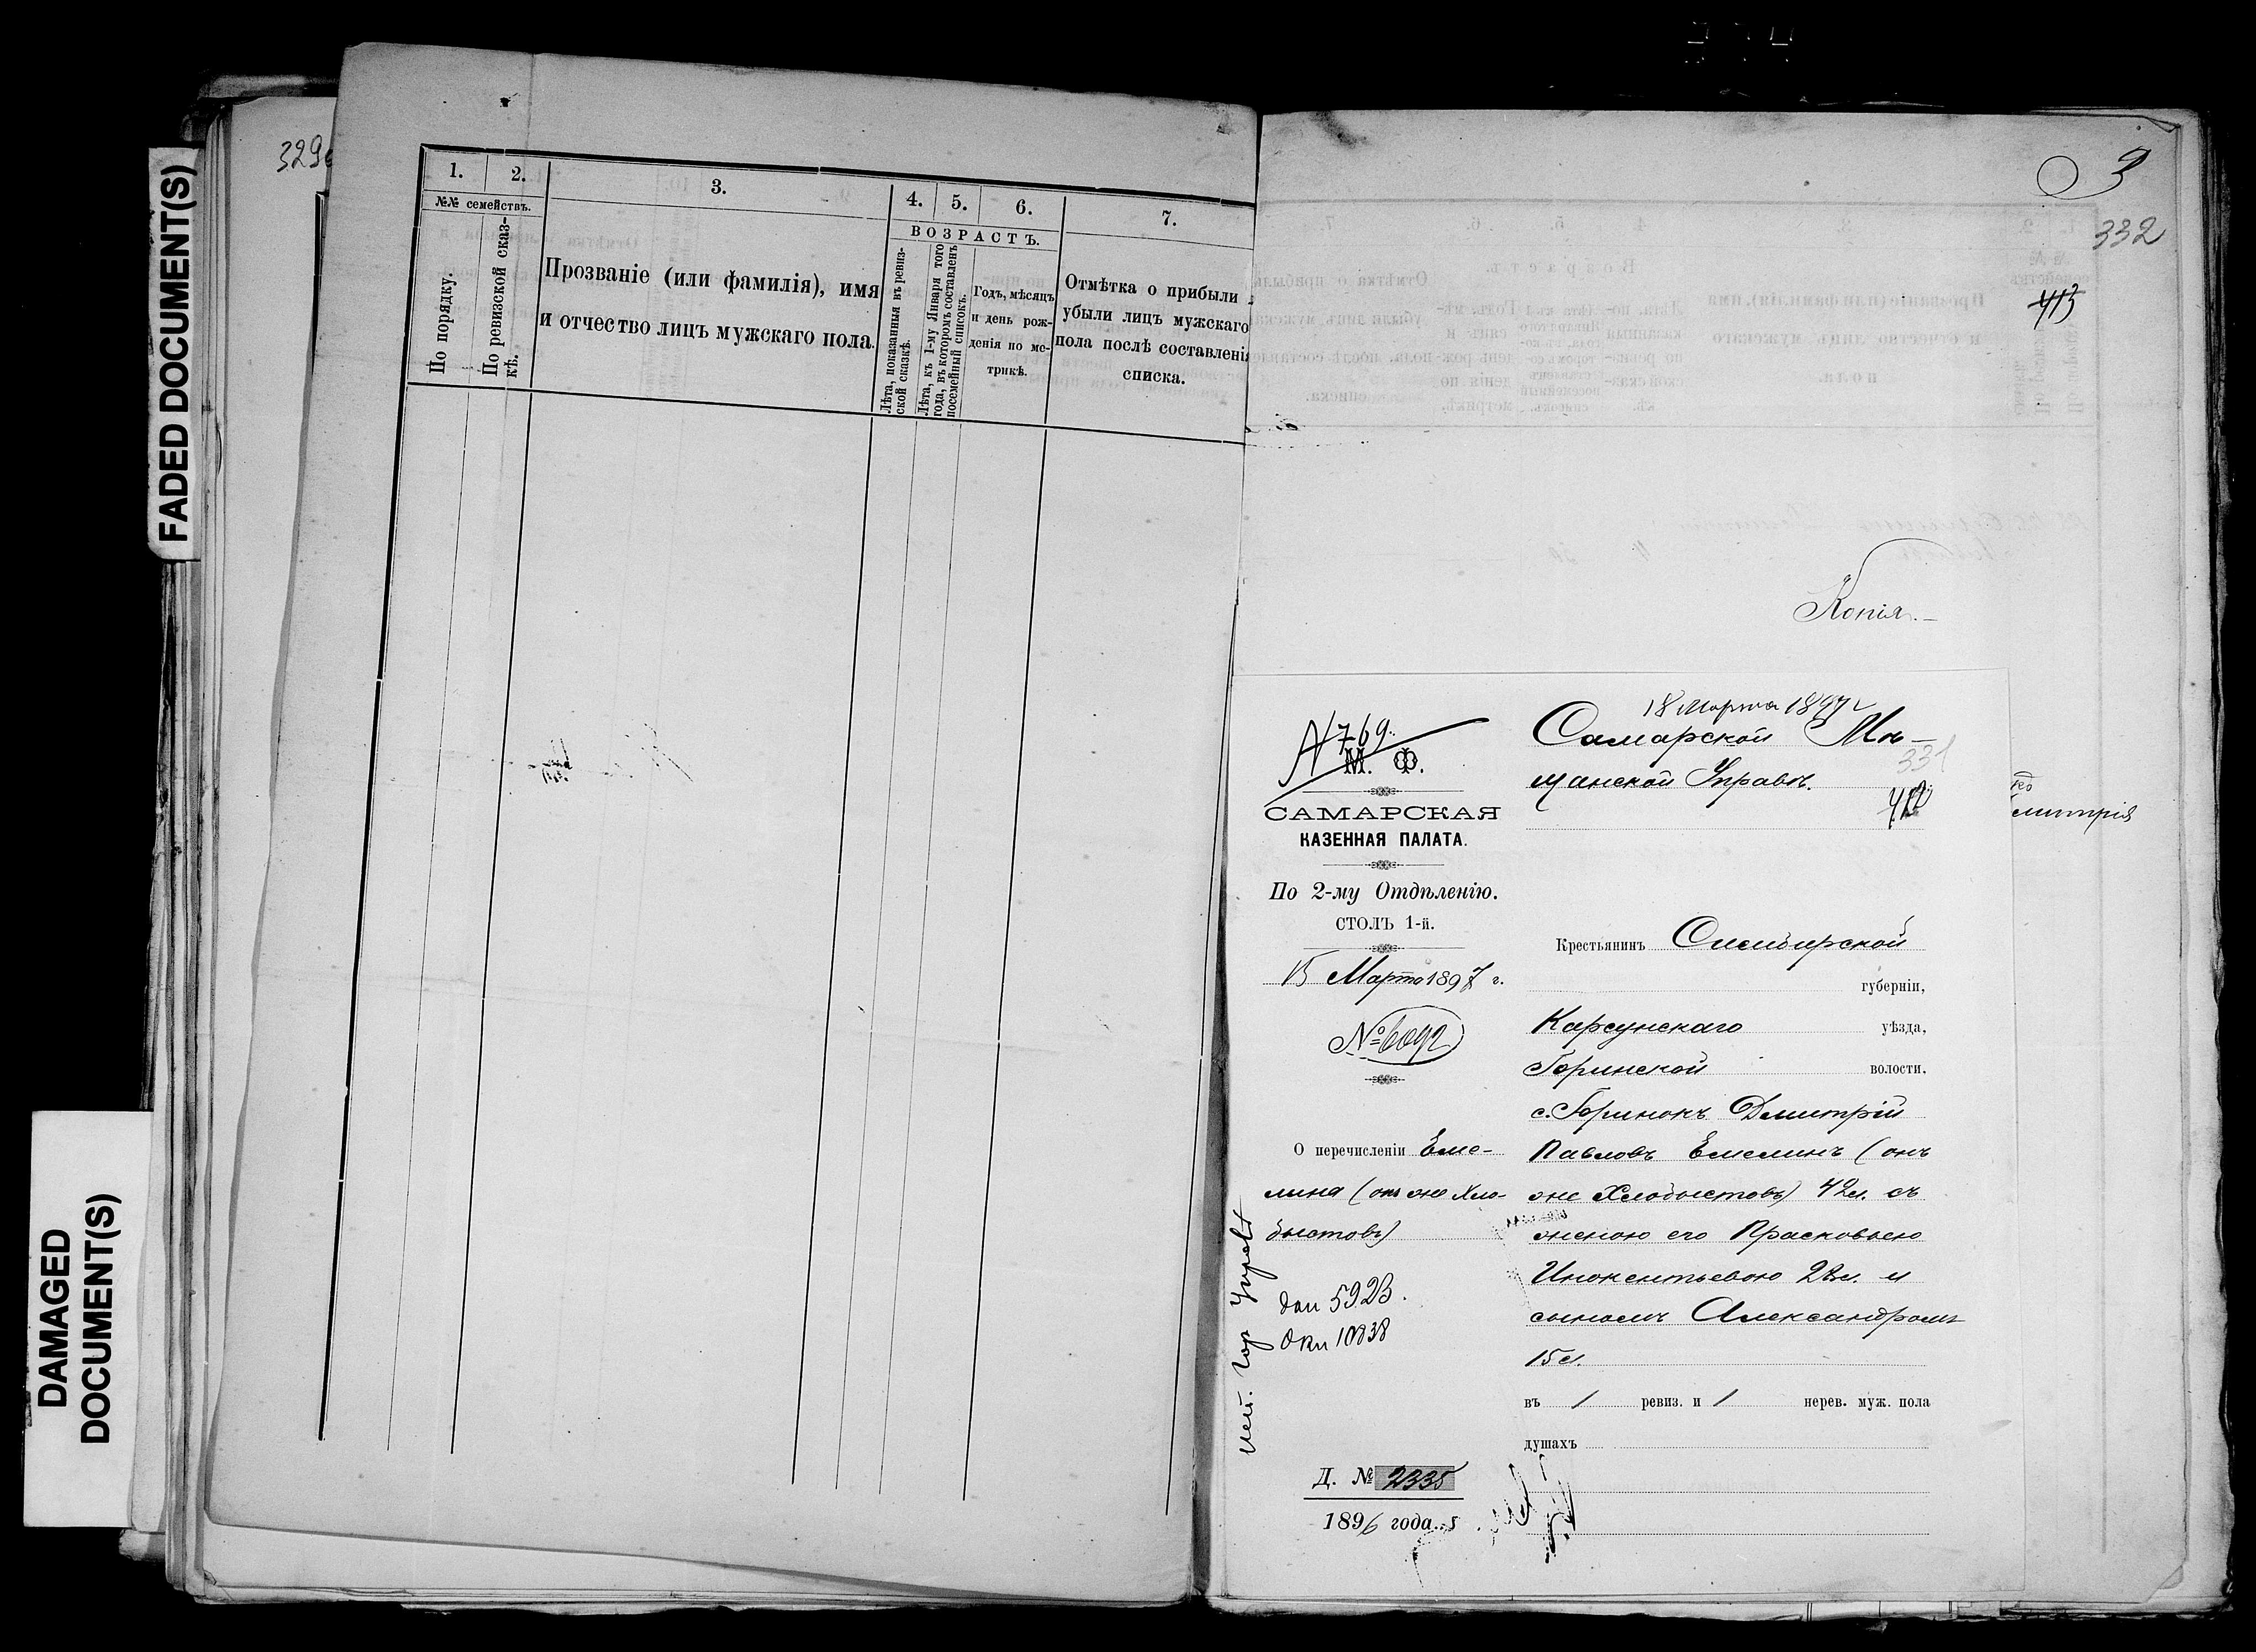 FADED DOCUMENT(S)
DAMAGED
DOCUMENT(S)
329
1.
2.
3.
4.
5.
6.
7.
№№ семействъ.
ВОЗРАСТЪ.
По порядку.
По ревизской сказ-
кѣ.
Прозваніе (или фамилія), имя
и отчество лицъ мужскаго пола.
Лѣта, показанныя въ ревиз-
ской сказкѣ.
Лѣта, къ 1-му Января того
года, въ которомъ составленъ
посемейный списокъ.
Годъ, мѣсяцъ
и день рож-
денія по ме-
трикѣ.
Отмѣтка о прибыли
убыли лицъ мужскаго
пола послѣ составленія
списка.
3
332
413
Копія.
18 Марта 1897 г
Самарской Мѣ-
щанской Управѣ.
331
412
митрія
N 769.
М. Ф.
САМАРСКАЯ
КАЗЕННАЯ ПАЛАТА.
По 2-му Отдѣленію.
СТОЛЪ 1-й.
15 Марта 1897 г.
№ 6092
О перечисленіи Еме-
лина (онъ же Хло-
быстовъ)
5923.
10838
Д. № 2335
1896 года.
Крестьянинъ Симбирской
губерніи,
Карсунскаго уѣзда,
Горинской волости.
с. Горинокъ Дмитрій
Павловъ Емелинъ (онъ
же Хлобыстовъ) 42 л. съ
женою его Прасковьею
Инокентьевою 28 л. и
сыномъ Александромъ
15 л.
въ 1 ревиз. и 1 нерев. муж. пола
душахъ